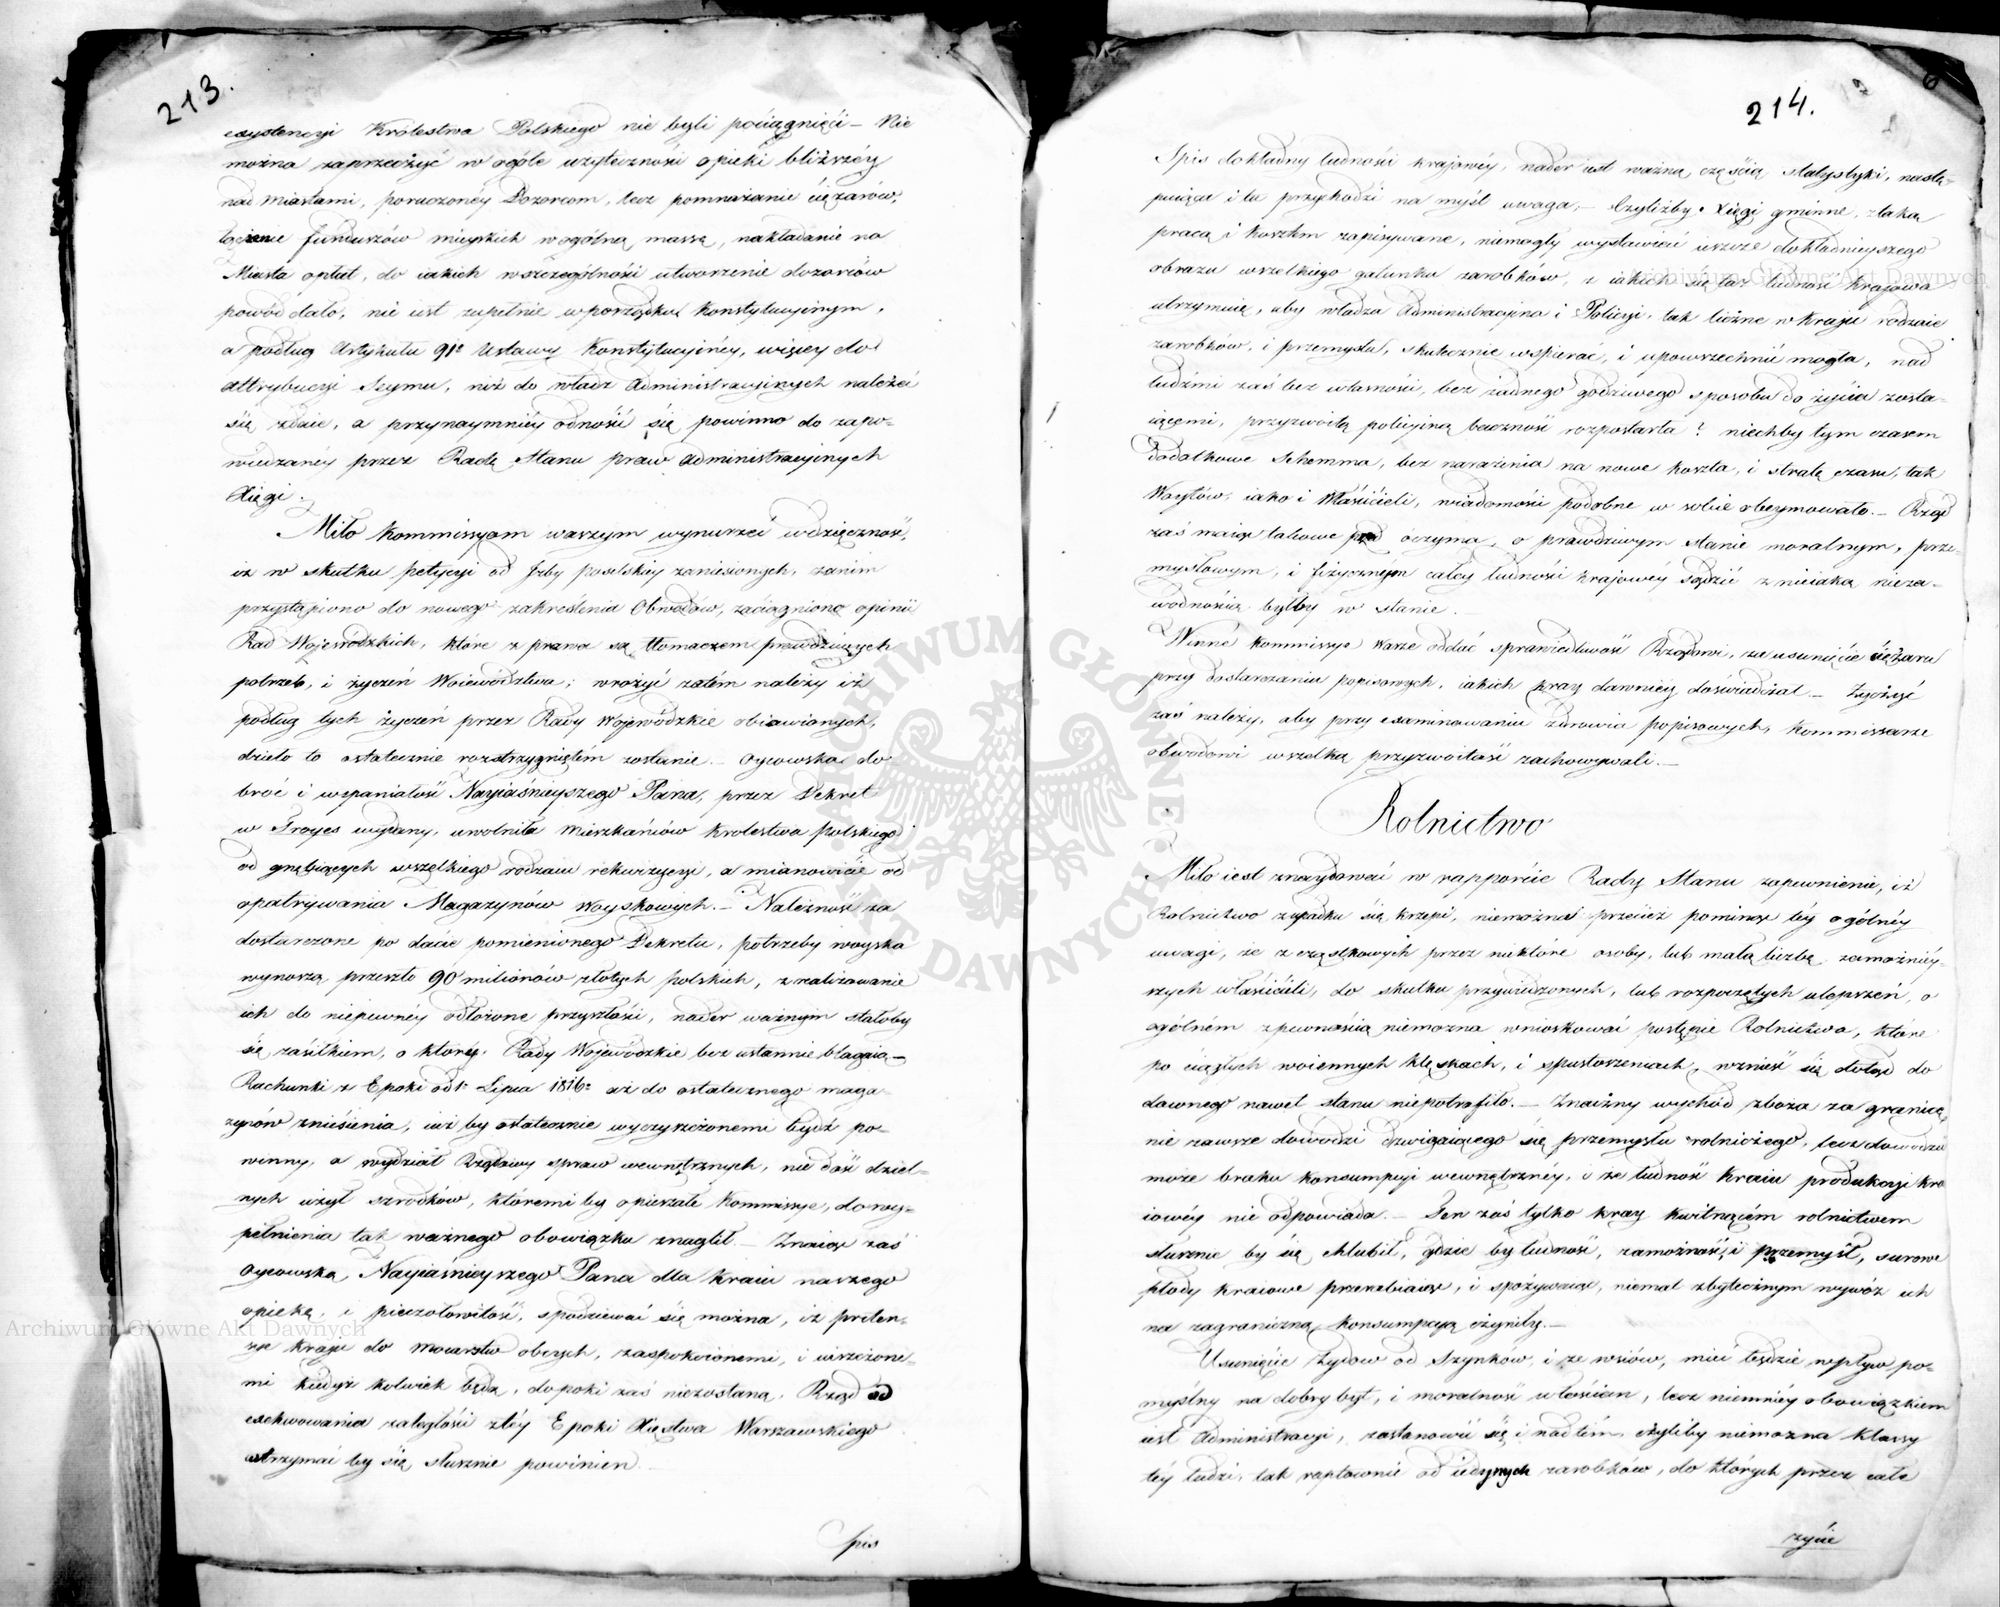 213.
exystencyi Królestwa Polskiego nie byli pociągnięci — Nie
można zaprzeczyć w ogóle użyteczności opieki bliższéy
nad Miastami, poruczonéy Dozorcom, lecz pomnażanie ciężarów,
łączenie funduszów mieyskich w ogólną massę, nakładanie na
Miasta opłat, do iakich w szczególności utworzenie dozorców
powód dało, nie iest zupełnie w porządku Konstytucyinym,
a podług Artykułu 91º Ustawy Konstytucyinéy, więcey do
attrybucyi Seymu, niż do władz Administracyinych należeć
się zdaie, a przynaymniéy odnosić się powinno do zapo-
wiedzanéy przez Radę Stanu praw administracyinych
Xięgi.
Miło Kommissyom waszym wynurzeć wdzięczność,
iż w skutku petycyi od Izby poselskiey zaniesionych, zanim
przystąpiono do nowego zakreślenia Obwodów, zaciągniono opinii
Rad Wojewódzkich, które z prawa są tłomaczem prawdziwych
potrzeb, i życzeń Województwa; wrożyć zatém należy iż
podług tych życzeń przez Rady Wojewódzkie obiawionych,
dzieło to ostatecznie rozstrzygniętém zostanie. — Oycowska do-
broć i wspaniałość Nayiaśnieyszego Pana, przez Dekret
w Troyes wydany, uwolniła Mieszkańców Krolestwa polskiego
od gnębiących wszelkiego rodzaiu rekwizycyi, a mianowicie od
opatrywania Magazynów woyskowych. — Należność za
dostarczone po dacie pomienionego Dekretu, potrzeby woyska
wynoszą przeszło 90 milionów złotych polskich, zrealizowanie
ich do niepewnéy odłożone przyszłości, nader ważnym stałoby
się zasiłkiem, o który Rady Wojewódzkie bez ustannie błagaią —
Rachunki z Epoki od 1º Lipca 1816º aż do ostatecznego maga-
zynów zniesienia, iuż by ostatecznie wyczyszczonemi bydź po-
winny, a wydział Rządowy spraw wewnętrznych, nie dość dziel-
nych użył szrodków, któremi by opieszałe Kommissye, do wy-
pełnienia tak ważnego obowiązku znaglił. — Znaiąc zaś
Oycowską, Nayiaśnieyszego Pana dla kraiu naszego
opiekę, i pieczołowitość, spodziewać się można, iż preten-
sye kraju do mocarstw obcych, zaspokoionemi, i uiszczone-
mi kiedyż kolwiek będą, dopoki zaś niezostaną, Rząd od
exekwowania zaległości z téy Epoki Xięstwa Warszawskiego
wstrzymać by się słusznie powinien. —
Spis
214.
Spis dokładny ludności krajowéy, nader iest ważną częścią statystyki, nastę-
puiąca i tu przychodzi na myśl uwaga, — Czyliżby Xięgi gminne, z taką
pracą i kosztem zapisywane, niemogły wystawiać ieszcze dokładnieyszego
obrazu wszelkiego gatunku zarobków, z iakich się taż ludność krajowa
utrzymuię, aby władza Administracyina i Policyi, tak liczne w kraju rodzaie
zarobków, i przemysłu, skutecznie wspierać, i upowszechnić mogła, nad
ludźmi zaś bez własności, bez żadnego godziwego sposobu do życia zosta-
iącemi, przyzwoitą policyiną baczność rozpostarła? niechby tym czasem
dodatkowe Schemma, bez narażenia na nowe koszta, i stratę czasu, tak
Woytów, iako i Właścicieli, wiadomości podobne w sobie obeymowało. — Rząd
zaś maiąc takowe przed oczyma, o prawdziwym stanie moralnym, prze-
mysłowym, i fizycznym całey ludności krajowéy sądzić z nieiaką nieza-
wodnością byłby w stanie.
Winné Kommissye Wasze oddać sprawiedliwość Rządowi, za usunięcie ciężaru
przy dostarczaniu popisowych, iakich kray dawniey doświadczał. — Życzyć
zaś należy, aby przy examinowaniu zdrowia popisowych, Kommissarze
obwodowi wszelką przyzwoitość zachowywali. —
Rolnictwo
Miło iest znaydować w rapporcie Rady Stanu zapewnienie, iż
Rolnictwo z upadku się krzepi, niemożna przecież pominąć téy ogólnéy
uwagi, że z cząstkowych przez niektóre osoby, lub małą liczbę zamożniéy-
szych właścicieli, do skutku przywiedzionych, lub rozpoczętych ulepszeń, o
ogólném z pewnością niemożna wnioskować postępie Rolnictwa, które
po ciągłych woiennych klęskach, i spustoszeniach, wznieść się dotąd do
dawnego nawet stanu niepotrafiło. — Znaczny wychód zboża za granicę,
nie zawsze dowodzi dzwigaiącego się przemysłu rolniczego, lecz dowodzić
może braku konsumpcyi wewnętrznéy, i że ludność kraiu produkcyi kra-
iowéy nie odpowiada. — Ten zaś tylko kray kwitnącém rolnictwem
słusznie by się chlubił, gdzie by ludność, zamożność, i przemysł, surowe
płody kraiowe przerabiaiąc, i spożywaiąc, niemal zbytecznym wywóz ich
na zagraniczną konsumpcyą czyniły. —
Usunięcie Żydow od Szynków, i ze wsiów, mieć będzie wpływ po-
myślny na dobry byt, i moralność włościan, lecz niemniéy obowiązkiem
iest Administracyi, zastanowić się i nad tém, czyliby niemożna klassy
téy ludzi, tak raptownie od iedynych zarobków, do których przez całe
życie